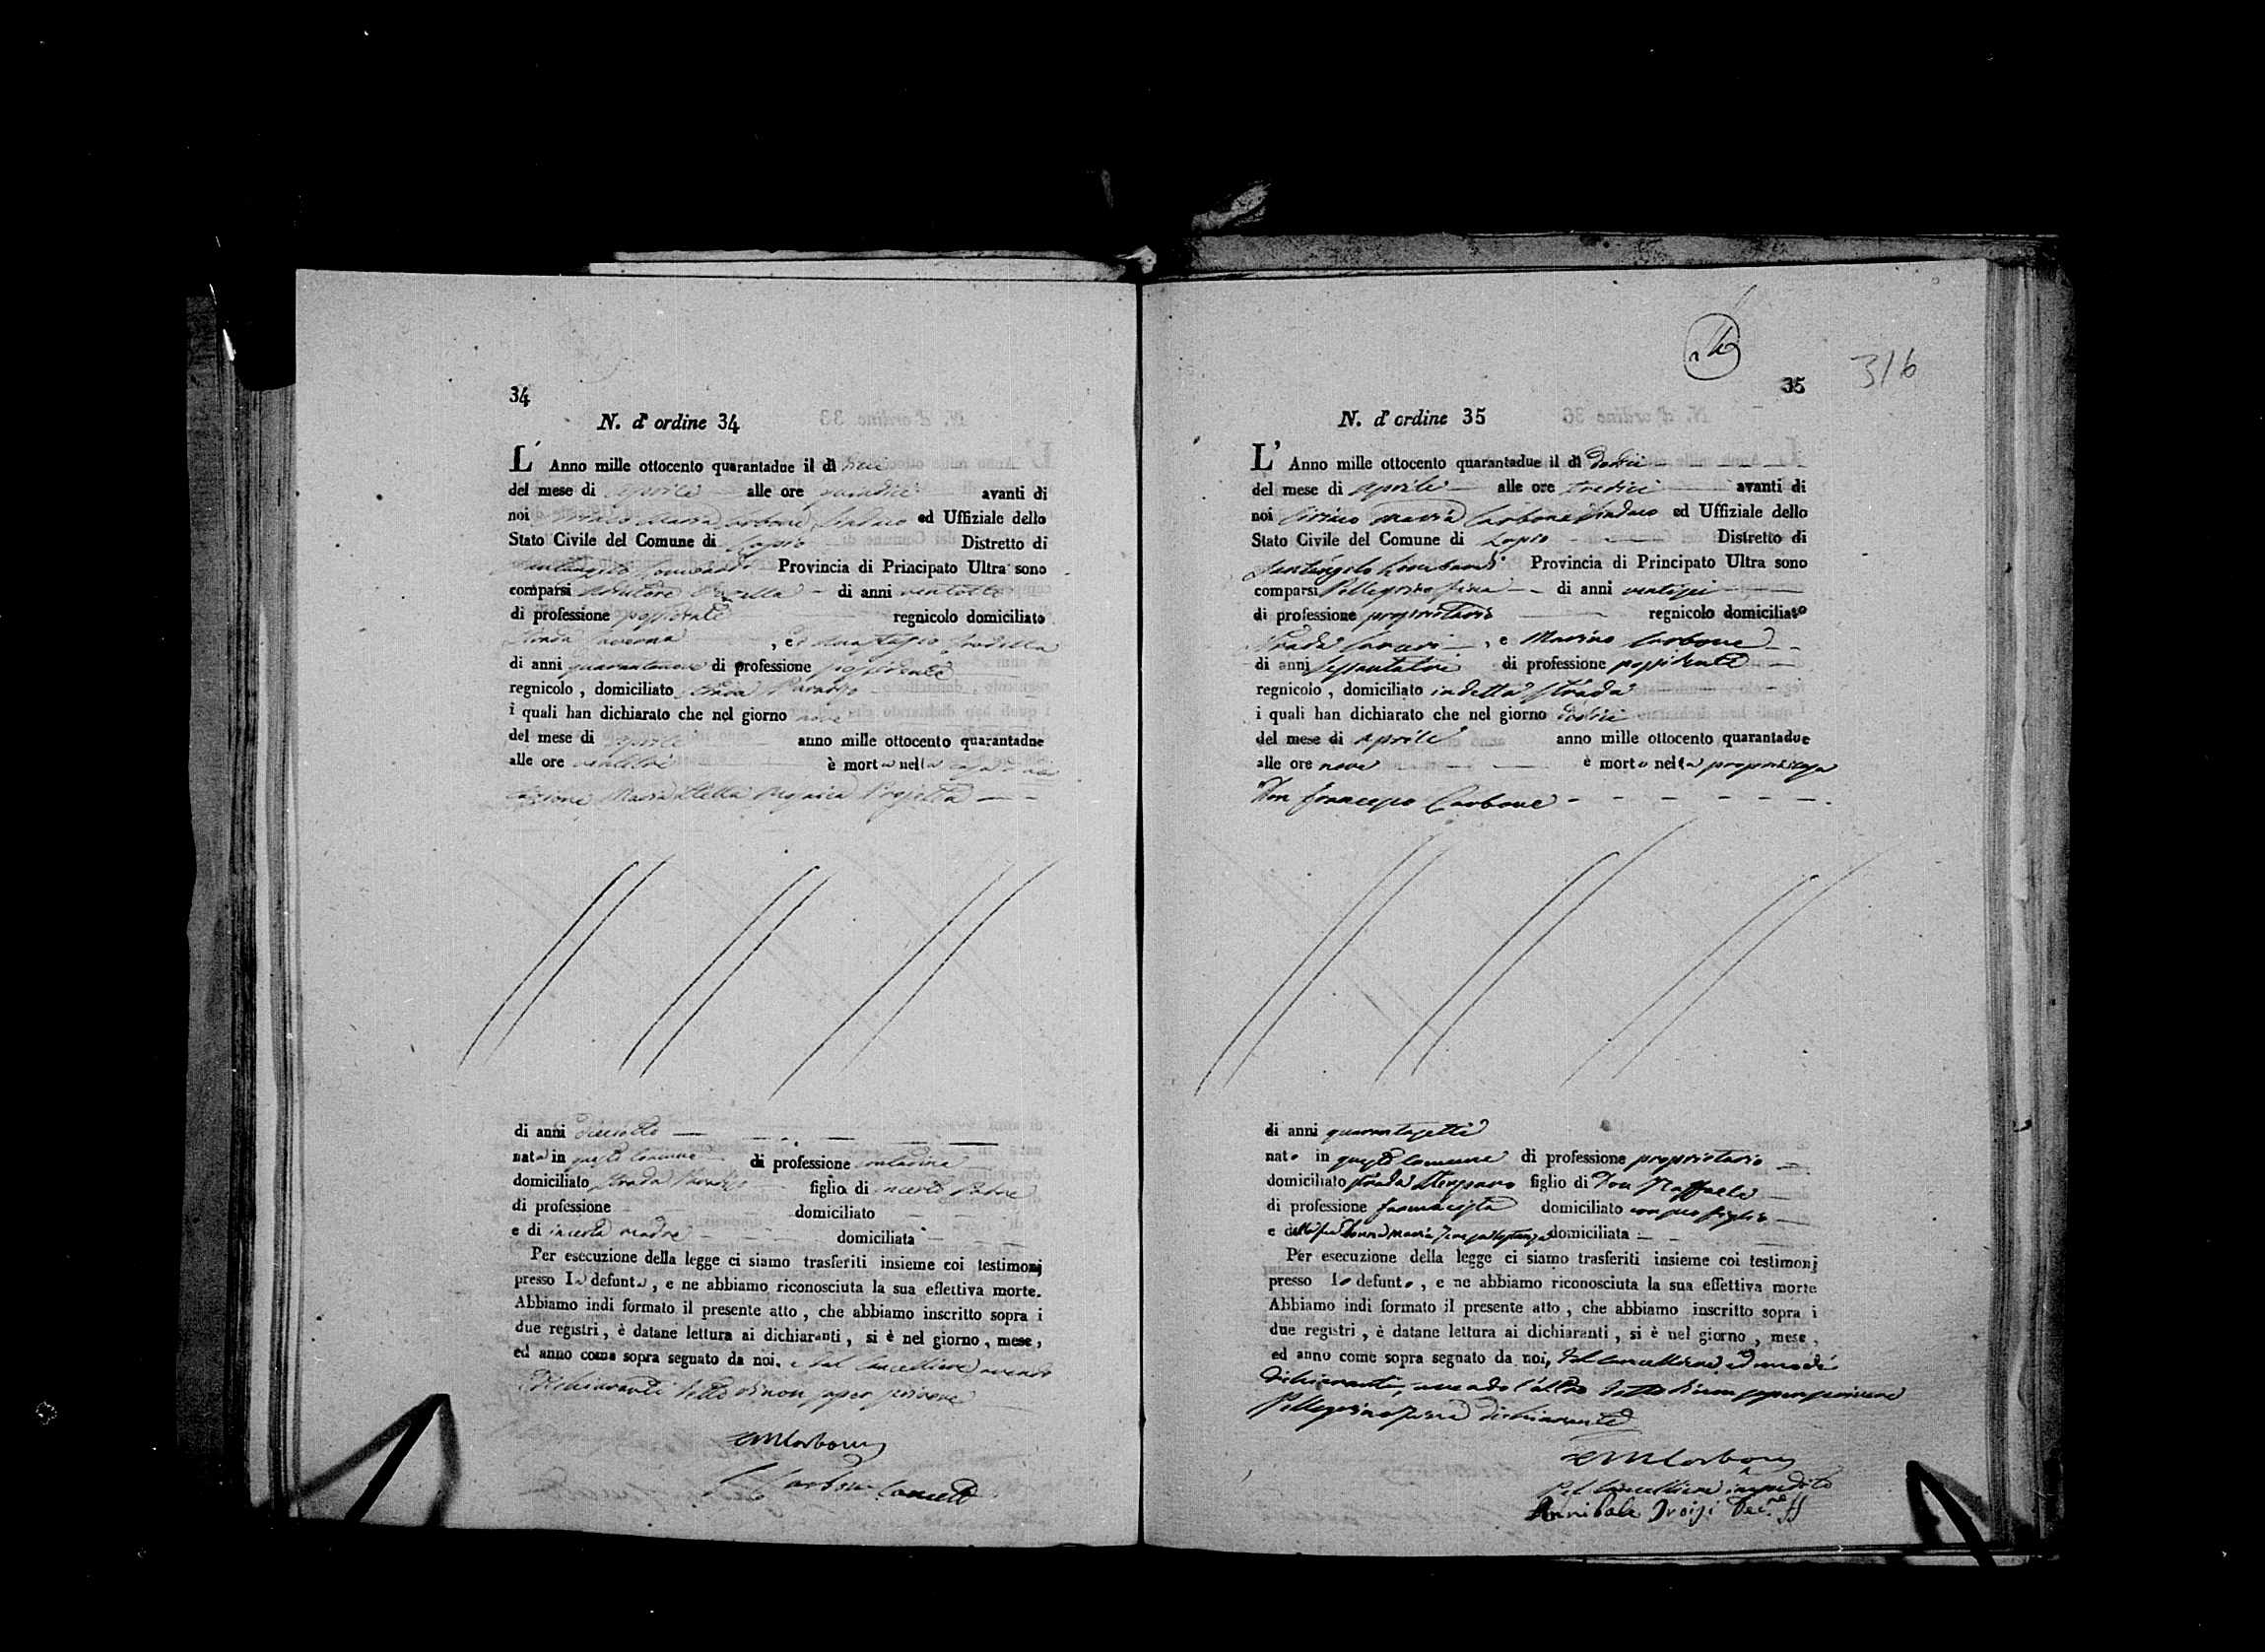 34
N. d'ordine 34
L' Anno mille ottocento quarantadue il dì
del mese di aprile alle ore avanti di
noi Maria Carbone Sindaco ed Uffiziale dello
Stato Civile del Comune di Lapio Distretto di
Santangelo Lombardi Provincia di Principato Ultra sono
comparsi di anni ventotto
di professione possidente regnicolo domiciliato
Strada , e
di anni quarantanove di professione possidente
regnicolo , domiciliato strada Paradiso
i quali han dichiarato che nel giorno nove
del mese di aprile anno mille ottocento quarantadue
alle ore è morta nella casa
Maria Stella Projetta
di anni dieciotto
nata in questo Comune di professione contadina
domiciliato strada Paradiso figlia di incerto Padre
di professione domiciliato
e di incerta madre domiciliata
Per esecuzione della legge ci siamo trasferiti insieme coi testimonj
presso la defunta , e ne abbiamo riconosciuta la sua effettiva morte.
Abbiamo indi formato il presente atto , che abbiamo inscritto sopra i
due registri , è datane lettura ai dichiaranti , si è nel giorno , mese ,
ed anno come sopra segnato da noi, e dal Cancelliere avendo
i dichiaranti detto di non saper scrivere
CMCarbone
Carbone Cancell
316
35
N. d'ordine 35
L' Anno mille ottocento quarantadue il dì dodici
del mese di aprile alle ore tredici avanti di
noi Ciriaco Maria Carbone Sindaco ed Uffiziale dello
Stato Civile del Comune di Lapio Distretto di
Santangelo Lombardi Provincia di Principato Ultra sono
comparsi Pellegrino di anni ventisei
di professione proprietario regnicolo domiciliato
Strada , e Marino Carbone
di anni sessantatre di professione possidente
regnicolo , domiciliato in detta strada
i quali han dichiarato che nel giorno dodici
del mese di aprile anno mille ottocento quarantadue
alle ore nove è morto nella propria casa
Don Francesco Carbone
di anni quarantasette
nato in questo Comune di professione proprietario
domiciliato strada figlio di Don Raffaele
di professione farmacista domiciliato con suo figlio
e della fu Donna Maria domiciliata
Per esecuzione della legge ci siamo trasferiti insieme coi testimonj
presso lo defunto , e ne abbiamo riconosciuta la sua effettiva morte
Abbiamo indi formato il presente atto , che abbiamo inscritto sopra i
due registri , è datane lettura ai dichiaranti , si è nel giorno , mese ,
ed anno come sopra segnato da noi, dal Cancelliere ed uno de'
dichiaranti, avendo l'altro detto di non saper scrivere
Pellegrino dichiarante
CMCarbone
Pel Cancelliere impedito
Annibale Troisi